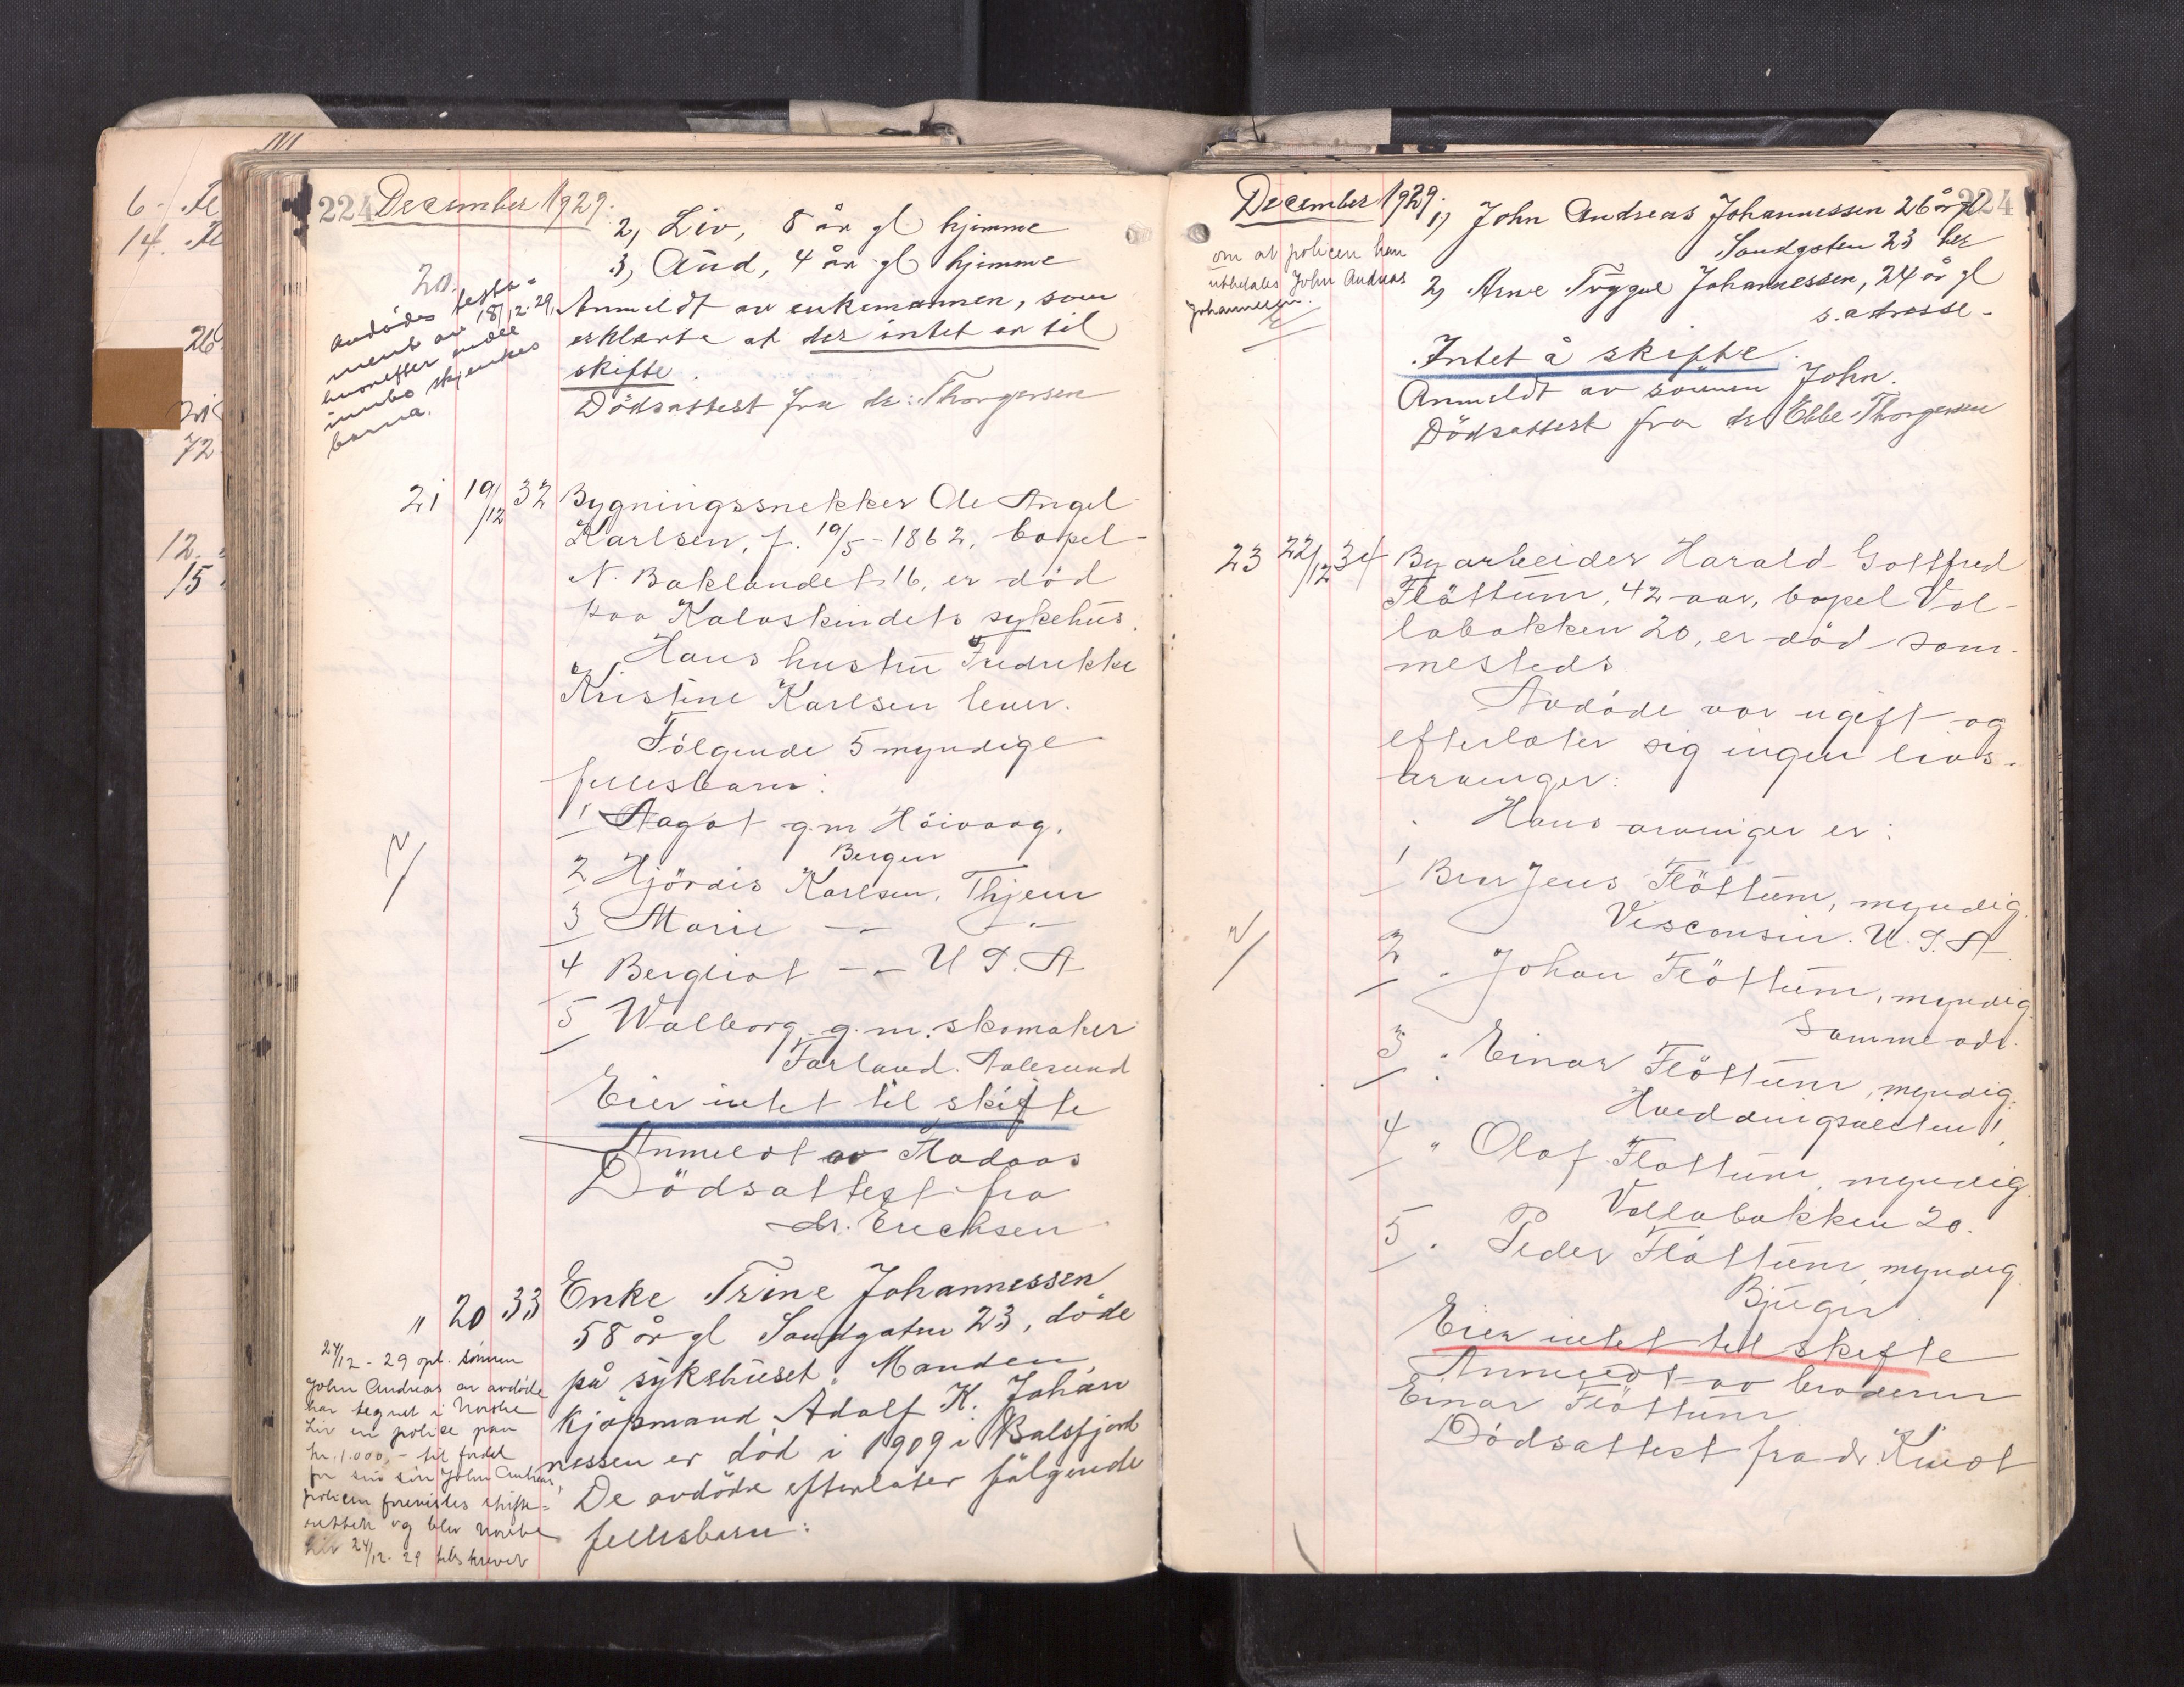 224 December 1929.
2, Liv, 8 år gl hjemme
3, Aud, 4 år gl hjemme
20.
avdödes testa-
ment av 18/12-29,
hvorefter
innbo skjenkes
barna.
Anmeldt av enkemannen, som
erklærte at der intet er til
skifte.
Dödsattest fra dr. Thorgersen
21 19/12 32 Bygningssnekker Ole Angel
Karlsen, f. 19/5-1862, bopel
N. Baklandet 16, er död
paa Kalvskindets sykehus.
Hans hustru Fredrikke
Kristine Karlsen lever.
Fölgende 5 myndige
fellesbarn:
1 Aagot g.m Höivaag.
Bergen
2 Hjördis Karlsen, Thjem
3 Marie -"- -"-
4 Bergliot -"- U S. A
5 Walborg g.m. skomaker
Farland. Aalesund
Eier intet til skifte
Anmeldt av Fladaas
Dödsattest fra
dr. Erichsen
" 20 33 Enke Trine Johannessen
58 år gl Sandgaten 23, döde
på sykehuset. Manden,
kjöpmand Adolf K. Johan
nessen er död i 1909 i Balsfjord
De avdöde efterlater fölgende
fellesbarn:
24/12-29 opl. sönnen
John Andreas at avdöde
har tegnet i Norske
Liv en police paa
kr. 1.000,- til fordel
for sin sön John Andreas,
policen forevistes skifte-
retten og blev Norske
Liv 24/12-29 tilskrevet
December 1929. 224
om at policen kan
utbetales John Andreas
Johannessen.
1, John Andreas Johannessen 26 år gl
Sandgaten 23 her
2, Arne Trygve Johannessen, 24 år gl
s. adresse-
Intet å skifte.
Anmeldt av sönnen John.
Dödsattest fra dr Ebbe Thorgersen
23 22/12 34 Byarbeider Harald Gottfred
Flöttum, 42 aar, bopel Vol-
labakken 20, er död sam-
mesteds.
Avdöde var ugift og
efterlater sig ingen livs-
arvinger.
Hans arvinger er:
1 Bror Jens Flöttum, myndig.
Visconsin. U. S. A
2 " Johan Flöttum, myndig.
Samme adr.
3 " Einar Flöttum, myndig.
4 " Olaf Flöttum, myndig.
Vollabakken 20.
5 " Peder Flöttum, myndig
Bjugn
Eier intet til skifte
Anmeldt av broderen
Einar Flöttum.
Dödsattest fra dr. Knot
6
14.
26
72
12
15